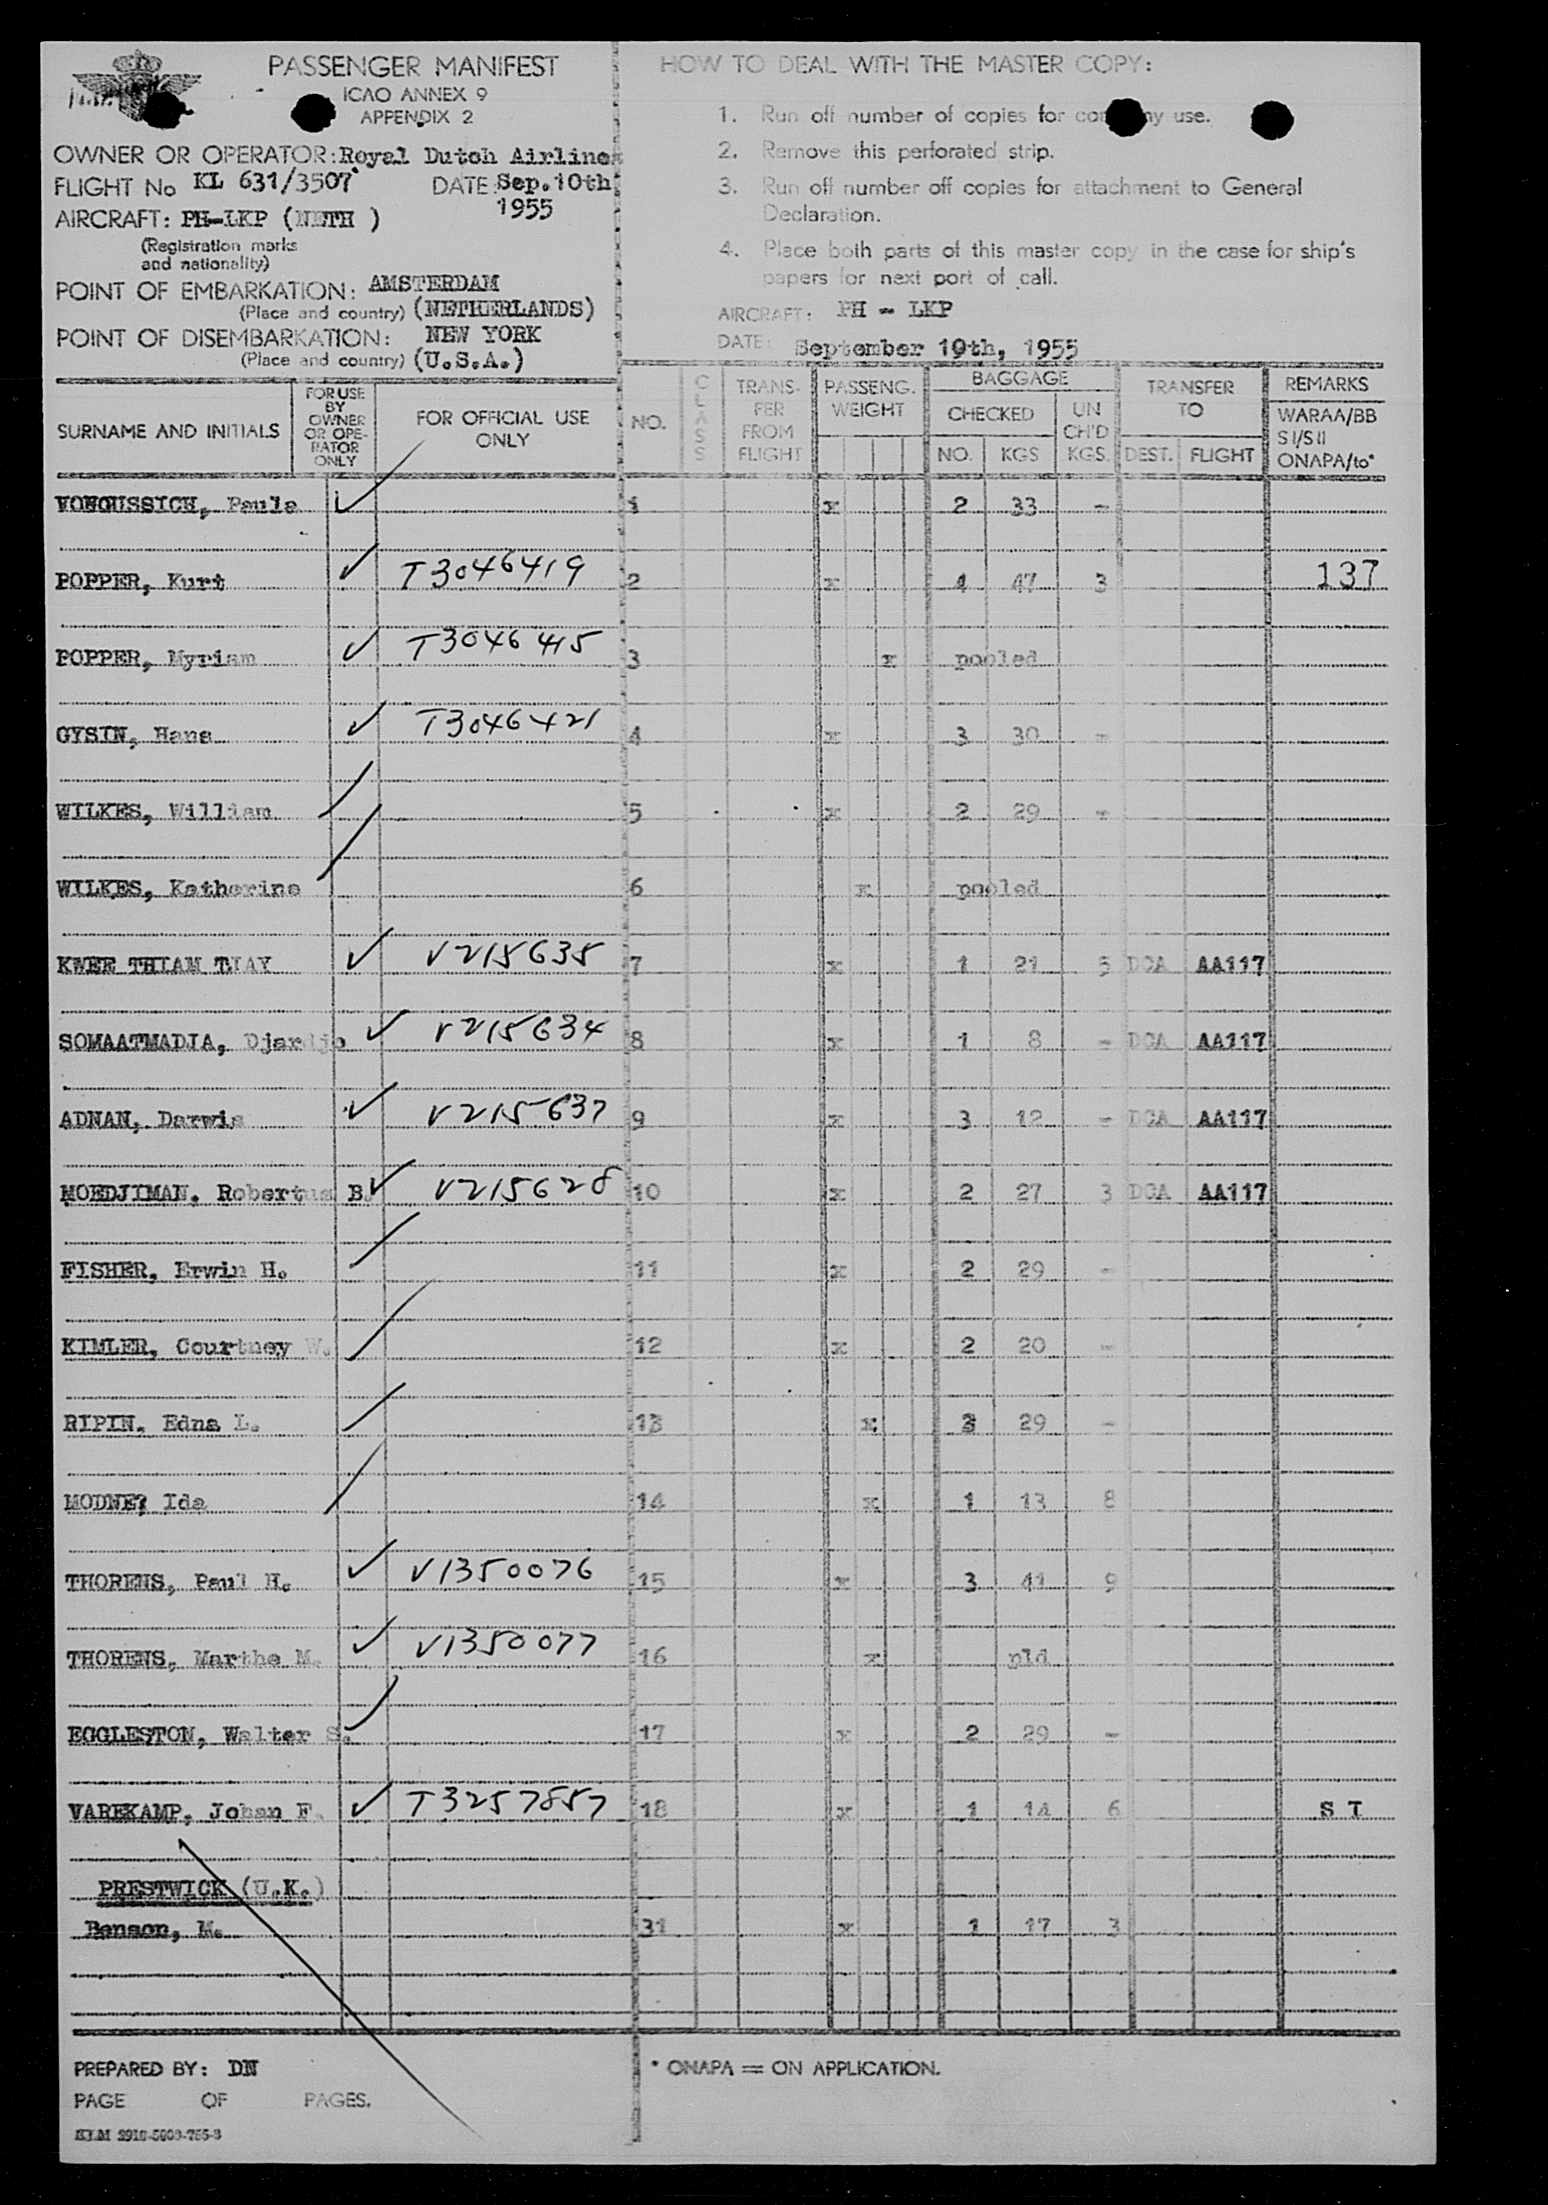 PASSENGER MANIFEST
ICAO ANNEX 9
APPENDIX 2
OWNER OR OPERATOR: Royal Dutch Airlines
FLIGHT No KL 631/3507 DATE: Sep. 10th
1955
AIRCRAFT: PH-LKP (NETH )
(Registration marks
and nationality)
POINT OF EMBARKATION: AMSTERDAM
(Place and country) (NETHERLANDS)
POINT OF DISEMBARKATION: NEW YORK
(Place and country) (U.S.A.)
HOW TO DEAL WITH THE MASTER COPY:
1. Run off number of copies for company use.
2. Remove this perforated strip.
3. Run off number off copies for attachment to General
Declaration.
4. Place both parts of this master copy in the case for ship's
papers for next port of call.
AIRCRAFT: PH - LKP
DATE: September 10th, 1955
SURNAME AND INITIALS
FOR USE
BY
OWNER
OR OPE-
RATOR
ONLY
FOR OFFICIAL USE
ONLY
NO.
CLASS
TRANS-
FER
FROM
FLIGHT
PASSENG.
WEIGHT
BAGGAGE
CHECKED
NO. KGS
UN
CH'D
KGS.
TRANSFER
TO
DEST. FLIGHT
REMARKS
WARAA/BB
SI/SII
ONAPA/to*
Paula 1 x 2 33 -
POPPER, Kurt T3046419 2 x 4 47 3 137
POPPER, Myriam T3046415 3 x pooled
GYSIN, Hans T3046421 4 x 3 30 -
WILKES, William 5 x 2 29 -
WILKES, Katherine 6 x pooled
KWEE THIAM TJAY V215635 7 x 1 21 5 DCA AA117
SOMAATMADJA, Djardjo V215634 8 x 1 8 - DCA AA117
ADNAN, Darwis V215637 9 x 3 12 - DCA AA117
MOEDJIMAN, Robertus B. V215628 10 x 2 27 3 DCA AA117
FISHER, Erwin H. 11 x 2 29 -
KIMLER, Courtney W. 12 x 2 20 -
RIPIN, Edna L. 13 x 3 29 -
MODNE, Ida 14 x 1 13 8
THORENS, Paul H. V1350076 15 x 3 41 9
THORENS, Marthe M. V1350077 16 x pld
EGGLESTON, Walter S. 17 x 2 29 -
VAREKAMP, Johan F. T3257857 18 x 1 14 6 S T
PRESTWICK (U.K.)
Benson, M. 31 x 1 17 3
PREPARED BY: DN
PAGE OF PAGES.
* ONAPA = ON APPLICATION.